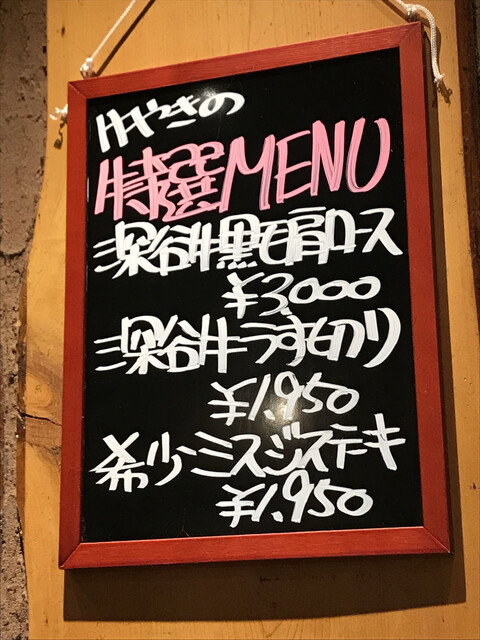 けやきの
特選MENU
深谷牛黒毛肩ロース
¥3,000
深谷牛うす切り
¥1,950
希少ミスジステーキ
¥1,950